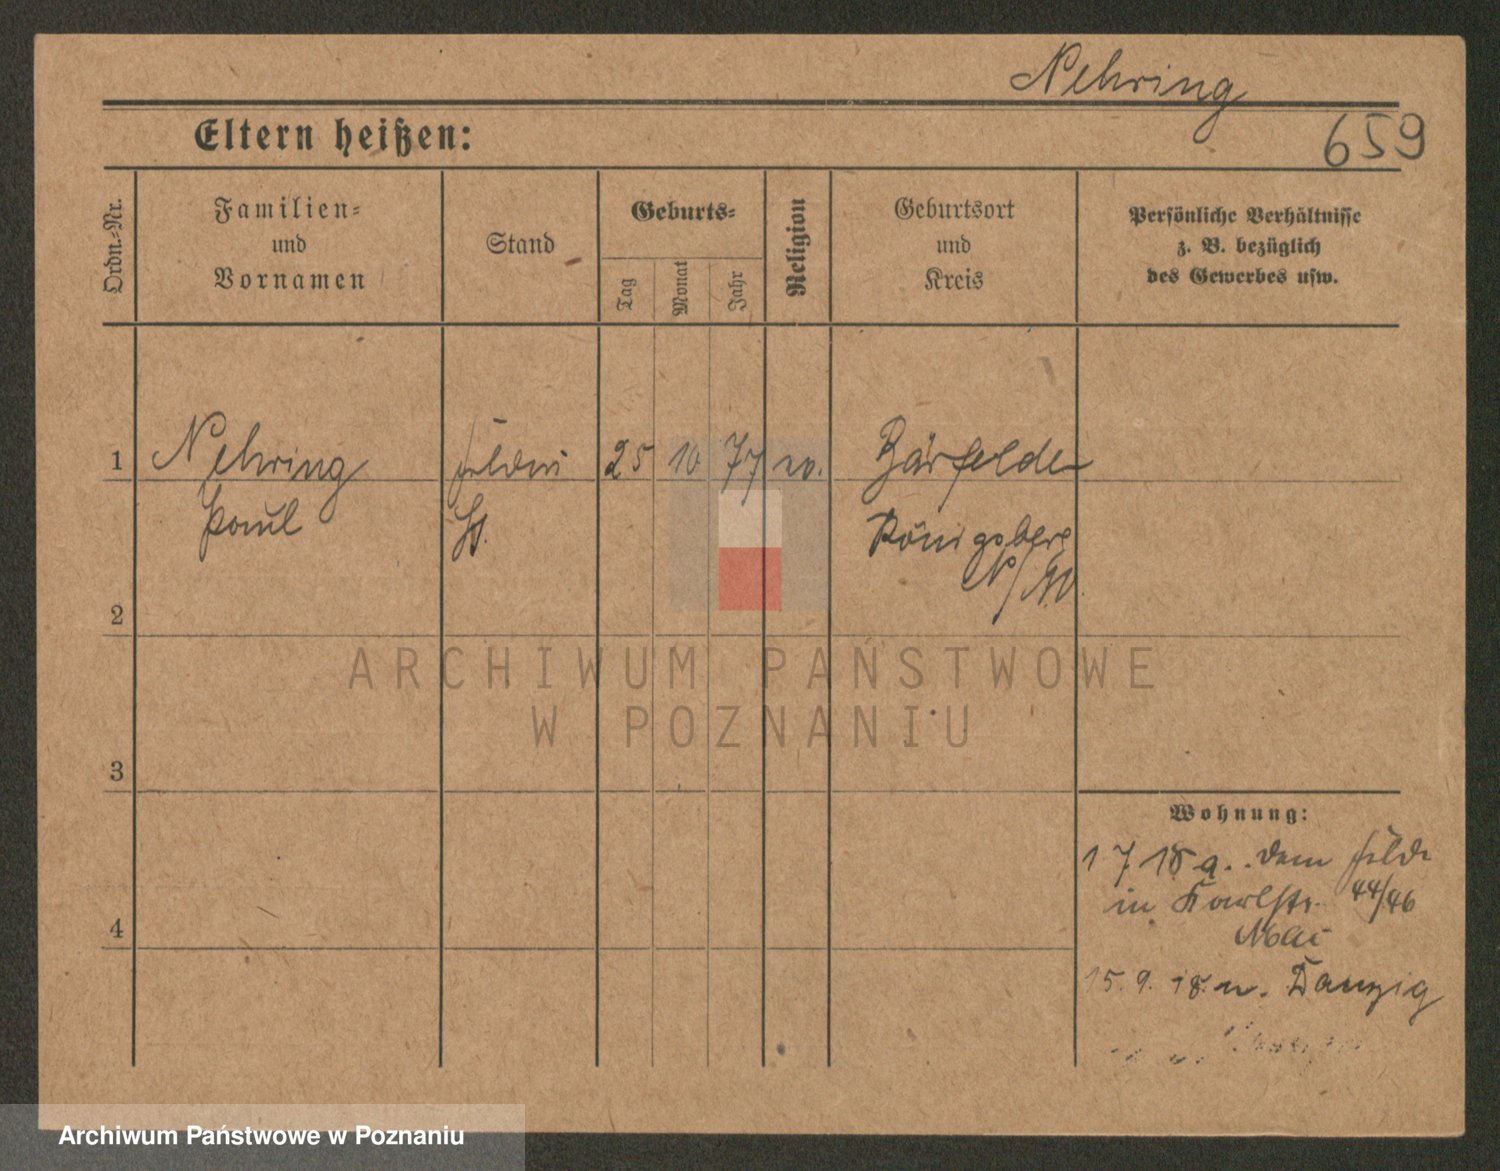 Nehring
659
Eltern heißen:
Ordn.-Nr.
Familien-
und
Vornamen
Stand
Geburts-
Tag
Monat
Jahr
Religion
Geburtsort
und
Kreis
Persönliche Verhältnisse
z. B. bezüglich
des Gewerbes usw.
1 Nehring 25 10 77 Bärfelde
Paul Königsberg
N/M
2
ARCHIWUM PAŃSTWOWE
W POZNANIU
3
Wohnung:
1 7 18 a. dem Felde
in Karlstr. 44/46
4
15. 9. 18. n. Danzig
Archiwum Państwowe w Poznaniu